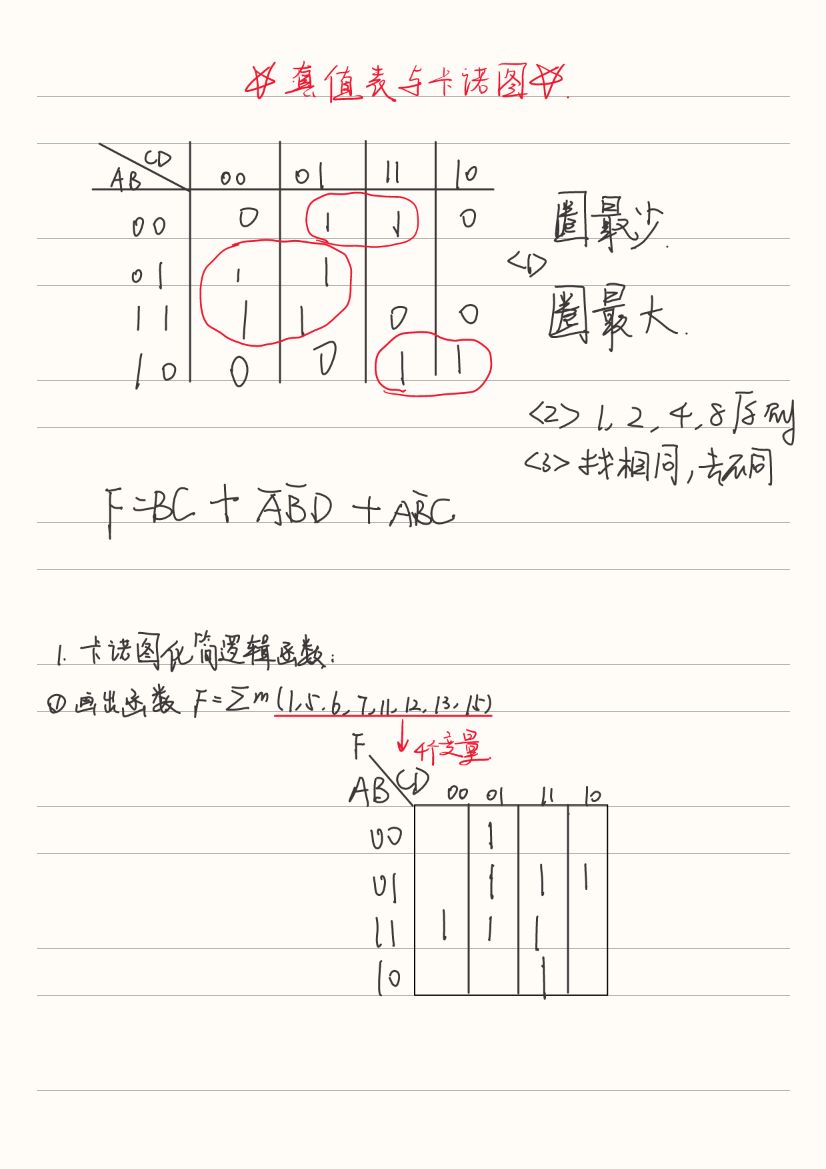 真值表与卡诺图
CD
AB 00 01 11 10
00 0 1 1 0
01 1 1
11 1 1 0 0
10 0 0 1 1
圈最少.
<1>
圈最大.
<2> 1, 2, 4, 8
<3> 找相同, 去不同
F=BC + A̅B̅D + AB̅C
1. 卡诺图化简逻辑函数:
① 画出函数 F=Σm(1,5,6,7,11,12,13,15)
4个变量
F
AB CD 00 01 11 10
00 1
01 1 1 1
11 1 1 1
10 1